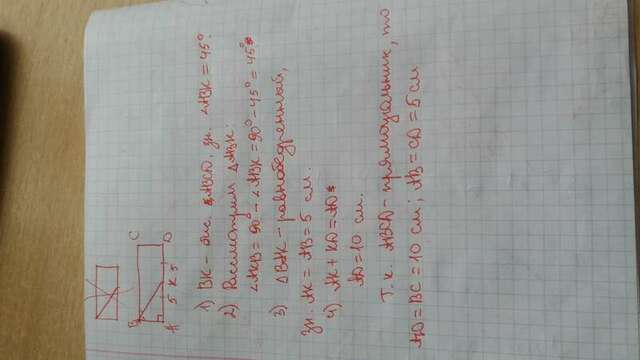 B C
A 5 K 5 D
1) BK - бис. ∠ABCD, зн. ∠ABK = 45°.
2) Рассмотрим △ABK:
∠AKB = 90° - ∠ABK = 90° - 45° = 45°
3) △BAK - равнобедренный,
зн. AK = AB = 5 см.
4) AK + KD = AD
AD = 10 см.
Т.к. ABCD - прямоугольник, то
AD = BC = 10 см; AB = CD = 5 см